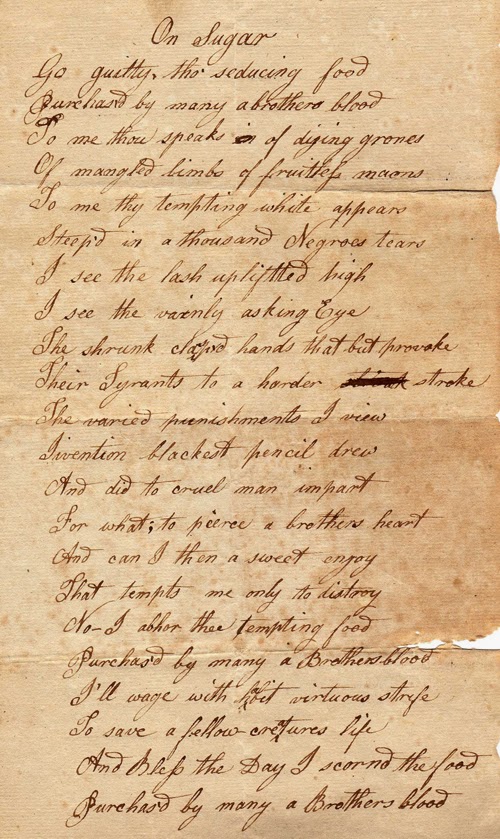 On Sugar
Go guilty, tho' seducing food
Purchas'd by many a brothers blood
To me thou speaks of dying grones
Of mangled limbs of fruitless maons
To me thy tempting white appears
Steep'd in a thousand Negroes tears
I see the lash upliftted high
I see the vainly asking Eye
The shrunk clasp'd hands that but provoke
Their Tyrants to a harder stroke
The varied punishments I view
Invention blackest pencil drew
And did to cruel man impart
For what; to pierce a brothers heart
And can I then a sweet enjoy
That tempts me only to distroy
No - I abhor thee tempting food
Purchas'd by many a Brothers blood
I'll wage with habit virtuous strife
To save a fellow creatures life
And Bless the Day I scornd the food
Purchas'd by many a Brothers blood